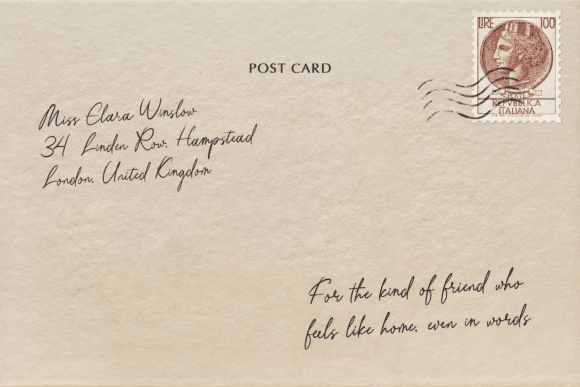 LIRE 100
POST CARD
Miss Clara Winslow
34 Linden Row, Hampstead
London, United Kingdom
REPVBBLICA
ITALIANA
For the kind of friend who
feels like home, even in words